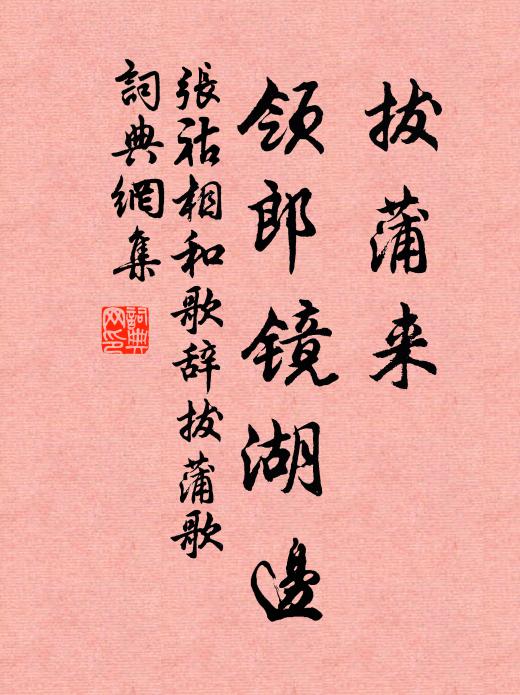 拔蒲来
领郎镜湖邊
張祜相和歌辞拔蒲歌
詞典網集
詞典
网印